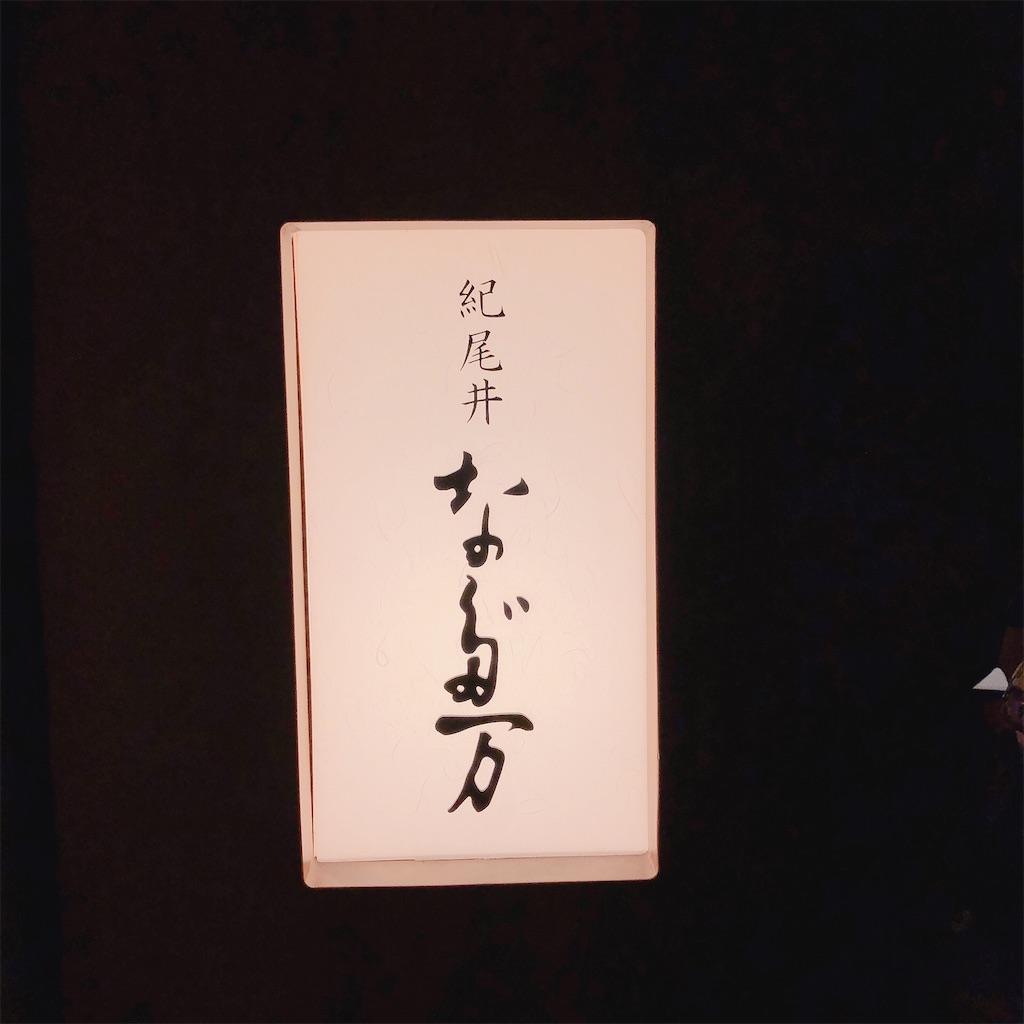 紀尾井 なだ万